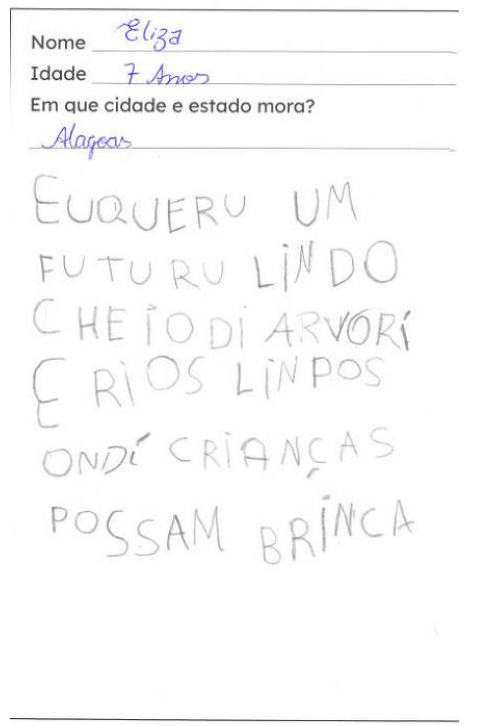 Nome Eliza
Idade 7 Anos
Em que cidade e estado mora?
Alagoas
EUQUERU UM
FUTURU LINDO
CHEIO DI ARVORÍ
E RIOS LINPOS
ONDÍ CRIANÇAS
POSSAM BRINCA